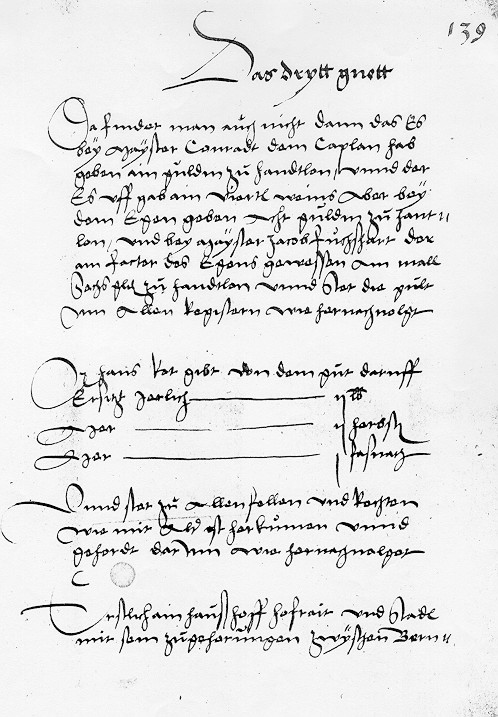 139
Das drytt guett
Da findet man auch nicht dann das Es
bey Mayster Conradt dem Caplan hab
geben ain guldin zu handtlon, unnd der
Es uff gab ain viertl weins Aber bey
dem Epen geben Acht guldin zu hant=
lon, und bey Mayster Jacob der
ain factor des Epens gewessen Am mall
Sechs gld zu handtlon unnd stet die gült
inn Allen Registern wie hernachvolgt
hans kot gibt von dem gut daruff
Er sitzt Jerlich ij lb
ij herbst
j fasnacht
Unnd stet zu Allen fellen und Rechten
wie mit Alter ist herkumen unnd
gehordt dar Inn wie hernachvolget
Erstlich ain hauss hoff hofrait und Stadl
mit sein zugehorungen zwyschen Bern=